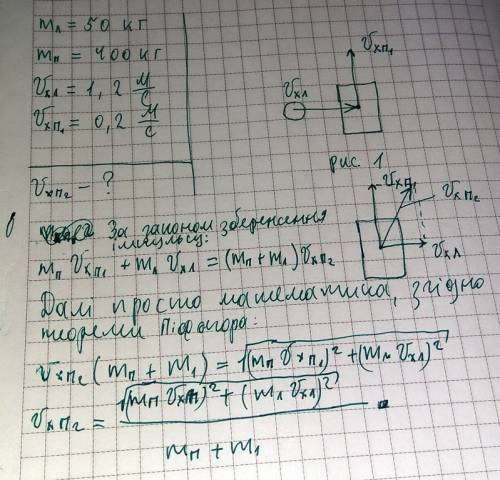 mл = 50 кг
mп = 400 кг
Vхл = 1,2 м/с
Vхп₁ = 0,2 м/с
Vхп₂ - ?
Vхп₁
Vхл
рис. 1
Vхп₁
Vхп₂
Vхл
За законом збереження
імпульсу:
mп Vхп₁ + mл Vхл = (mп + mл) Vхп₂
Далі просто математика, згідно
теореми Піфагора:
Vхп₂ (mп + mл) = √((mп Vхп₁)² + (mл Vхл)²)
Vхп₂ = √((mп Vхп)² + (mл Vхл)²) / (mп + mл)